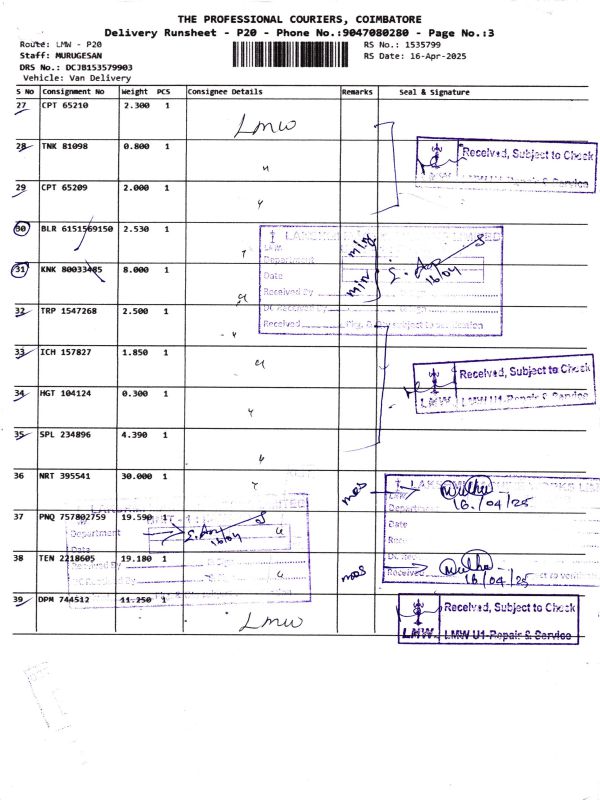 THE PROFESSIONAL COURIERS, COIMBATORE
Delivery Runsheet - P20 - Phone No.:9047080280 - Page No.:3
Route: LMW - P20
RS No.: 1535799
Staff: MURUGESAN
RS Date: 16-Apr-2025
DRS No.: DCJB153579903
Vehicle: Van Delivery
S No Consignment No Weight PCS Consignee Details Remarks Seal & Signature
27 CPT 65210 2.300 1
Lmw
28 TNK 81098 0.800 1 "
Received, Subject to Check
LMW LMW U1-Repair & Service
29 CPT 65209 2.000 1 "
30 BLR 6151569150 2.530 1 "
Department
Date
16/04
31 KNK 80033485 8.000 1 "
Received By
32 TRP 1547268 2.500 1 "
Received
33 ICH 157827 1.850 1 "
Received, Subject to Check
LMW LMW U1-Repair & Service
34 HGT 104124 0.300 1 "
35 SPL 234896 4.390 1 "
36 NRT 395541 30.000 1 "
16/04/25
37 PNQ 757802759 19.590 1 "
Department
16/04
Date
Date
38 TEN 2218605 19.180 1 "
Received
16/04/25
39 DPM 744512 11.250 1
Lmw
Received, Subject to Check
LMW LMW U1-Repair & Service